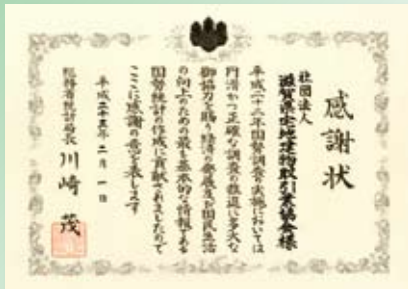 感謝状
社団法人
滋賀県宅地建物取引業協会様
平成二十二年国勢調査の実施においては
円滑かつ正確な調査の推進に多大な
御協力を賜り経済の発展及び国民生活
の向上のための最も基本的な情報である
国勢統計の作成に貢献されましたので
ここに感謝の意を表します
平成二十三年二月一日
総務省統計局長 川崎 茂